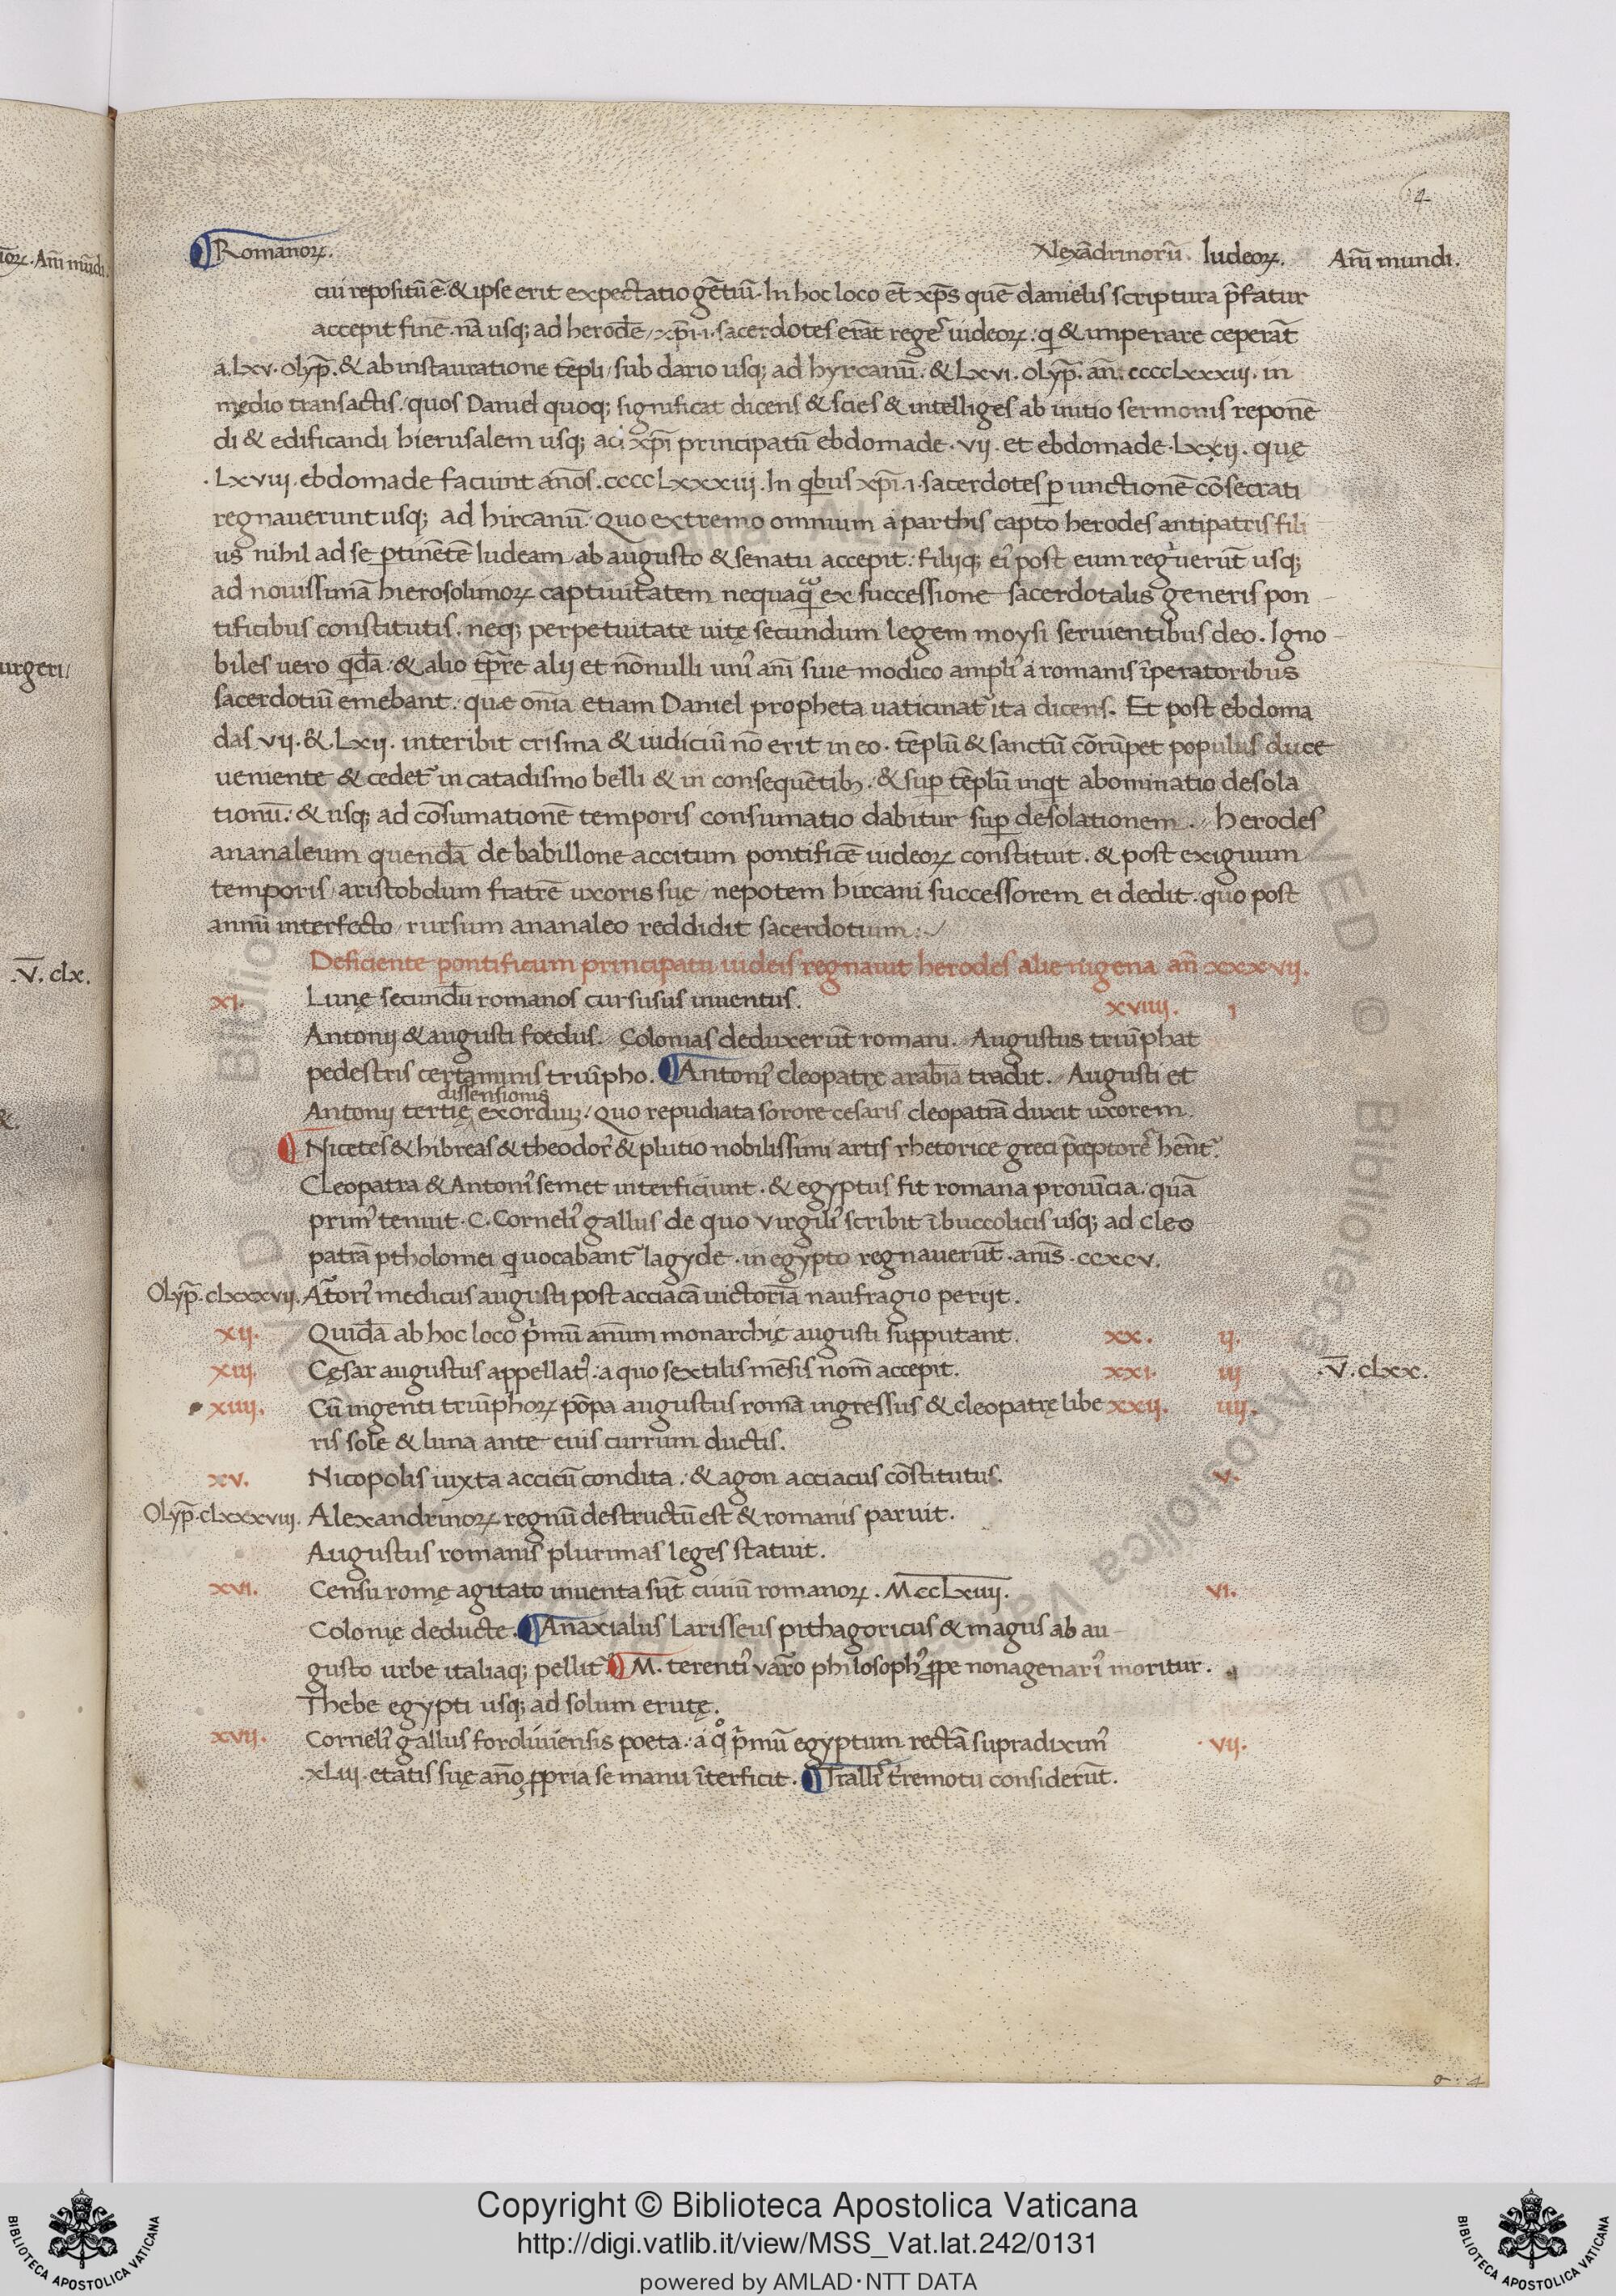 Romanoꝝ. Alexādrinorū. Iudeoꝝ. Anī mundi.
cui repositū ē. & ipse erit expectatio gētiū. In hoc loco ēt xp̄s quē danielis scriptura p̄fatur
accepit finē. nā usq; ad herodē, xp̄i .i. sacerdotes erāt reges iudeoꝝ: q & imperare ceperāt
a .lxv. olyp̄. & ab instauratione tēpli, sub dario usq; ad hyrcanū. & Lxvi. olyp̄. an̄. ccccLxxxiii. in
medio transactis. quos Daniel quoq; significat dicens & scies & intelliges ab initio sermonis reponē
di & edificandi hierusalem usq; ad xp̄i principatū ebdomade. vii. et ebdomade. Lxii. quę
.Lxviiii. ebdomade faciunt an̄os. ccccLxxxiii. In qbus xp̄i .i. sacerdotes ꝑ unctionē cōsecrati
regnauerunt usq; ad hircanū. Quo extremo omnium a parthis capto herodes antipatris fili
us nihil ad se ꝑtinētē Iudeam, ab augusto & senatu accepit: filiiq; ei' post eum reg'uerūt usq;
ad nouissimā hierosolimoꝝ captiuitatem nequaq̄ ex successione sacerdotalis generis pon
tificibus constitutis. neq; perpetuitate uitę secundum legem moysi seruientibus deo. Igno
biles uero qdā: & alio tp̄re alij et nōnulli uni' anī siue modico ampli' a romanis īperatoribus
sacerdotiū emebant. que onīa etiam Daniel propheta uaticinat' ita dicens. Et post ebdoma
das vii. & Lxii. interibit crisma & iudiciū nō erit in eo. tēplū & sanctū cōrūpet populus duce
ueniente & cedet' in catadismo belli & in consequētib;. & suꝑ tēplū inqt abominatio desola
tionū: & usq; ad cōsumationē temporis consumatio dabitur suꝑ desolationem. herodes
ananaleum quendā de babillone accitum pontificē iudeoꝝ constituit. & post exiguum
temporis, aristobolum fratrē uxoris suę, nepotem hircani successorem ei dedit. quo post
annū interfecto, rursum ananaleo reddidit sacerdotium:
.V̄. clx. Deficiente pontificum principatu iudeis regnauit herodes alienigena an̄ xxxvii.
xi. Lunę secundū romanos cursusus inuentus. xviiii. i
Antonij & augusti fœdus. Colonias deduxerūt romani. Augustus triūphat
pedestris certaminis triūpho. Antoni' cleopatrę arabiā tradit. Augusti et
dissensionis
Antonij tertię exordiuꝫ. Quo repudiata sorore cesaris cleopatrā duxit uxorem.
Nicetes & hibreas & theodor' & plutio nobilissimi artis rhetorice greci p̄ceptores hēnt'.
Cleopatra & Antoni' semet interficiunt. & egyptus fit romana prouīcia. quā
prim' tenuit. C. Corneli' gallus de quo virgili' scribit ī buccolicis usq; ad Cleo
patrā ptholomei q uocabant' lagyde. in egypto regnauerūt. anis̄. ccxcv.
Olyp̄. clxxxvii. At̄ori' medicus augusti post acciacā uictoriā naufragio perijt.
xii. Quidā ab hoc loco p'mū an̄um monarchię augusti supputant. xx. ij.
xiii. Cęsar augustus appellat': a quo sextilis mēsis nom̄ accepit. xxi. iij .V̄. clxx.
xiiii. Cū ingenti triūphoꝝ pōpa augustus romā ingressus & cleopatrę libe xxij. iiij.
ris sole & luna ante eius currum ductis.
xv. Nicopolis iuxta acciū condita: & agon acciacus cōstitutus. v.
Olyp̄. clxxxviii. Alexandrinoꝝ regnū destructū est & romanis paruit.
Augustus romanis plurimas leges statuit.
xvi. Censu romę agitato inuenta sūt ciuiū romanoꝝ. MccLxiiii. vi.
Colonię deducte. Anaxialus Larisseus pithagoricus & magus ab au
gusto urbe italiaq; pellit'. M. terenti' varro philosoph' ꝓpe nonagenari' moritur.
Thebe egypti usq; ad solum erutę.
xvii. Corneli' gallus foroliuiensis poeta: a qo p'mū egyptum rectā supradixim' vii.
.xLiii. etatis suę an̄o ꝓpria se manu īterficit. Tralli' t'remotu consider̄ut.
Copyright © Biblioteca Apostolica Vaticana
http://digi.vatlib.it/view/MSS_Vat.lat.242/0131
powered by AMLAD·NTT DATA